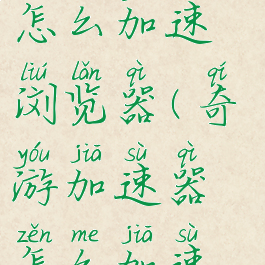 怎么加速
liú lǎn qì qí
浏览器(奇
yóu jiā sù qì
游加速器
zěn me jiā sù
怎么加速